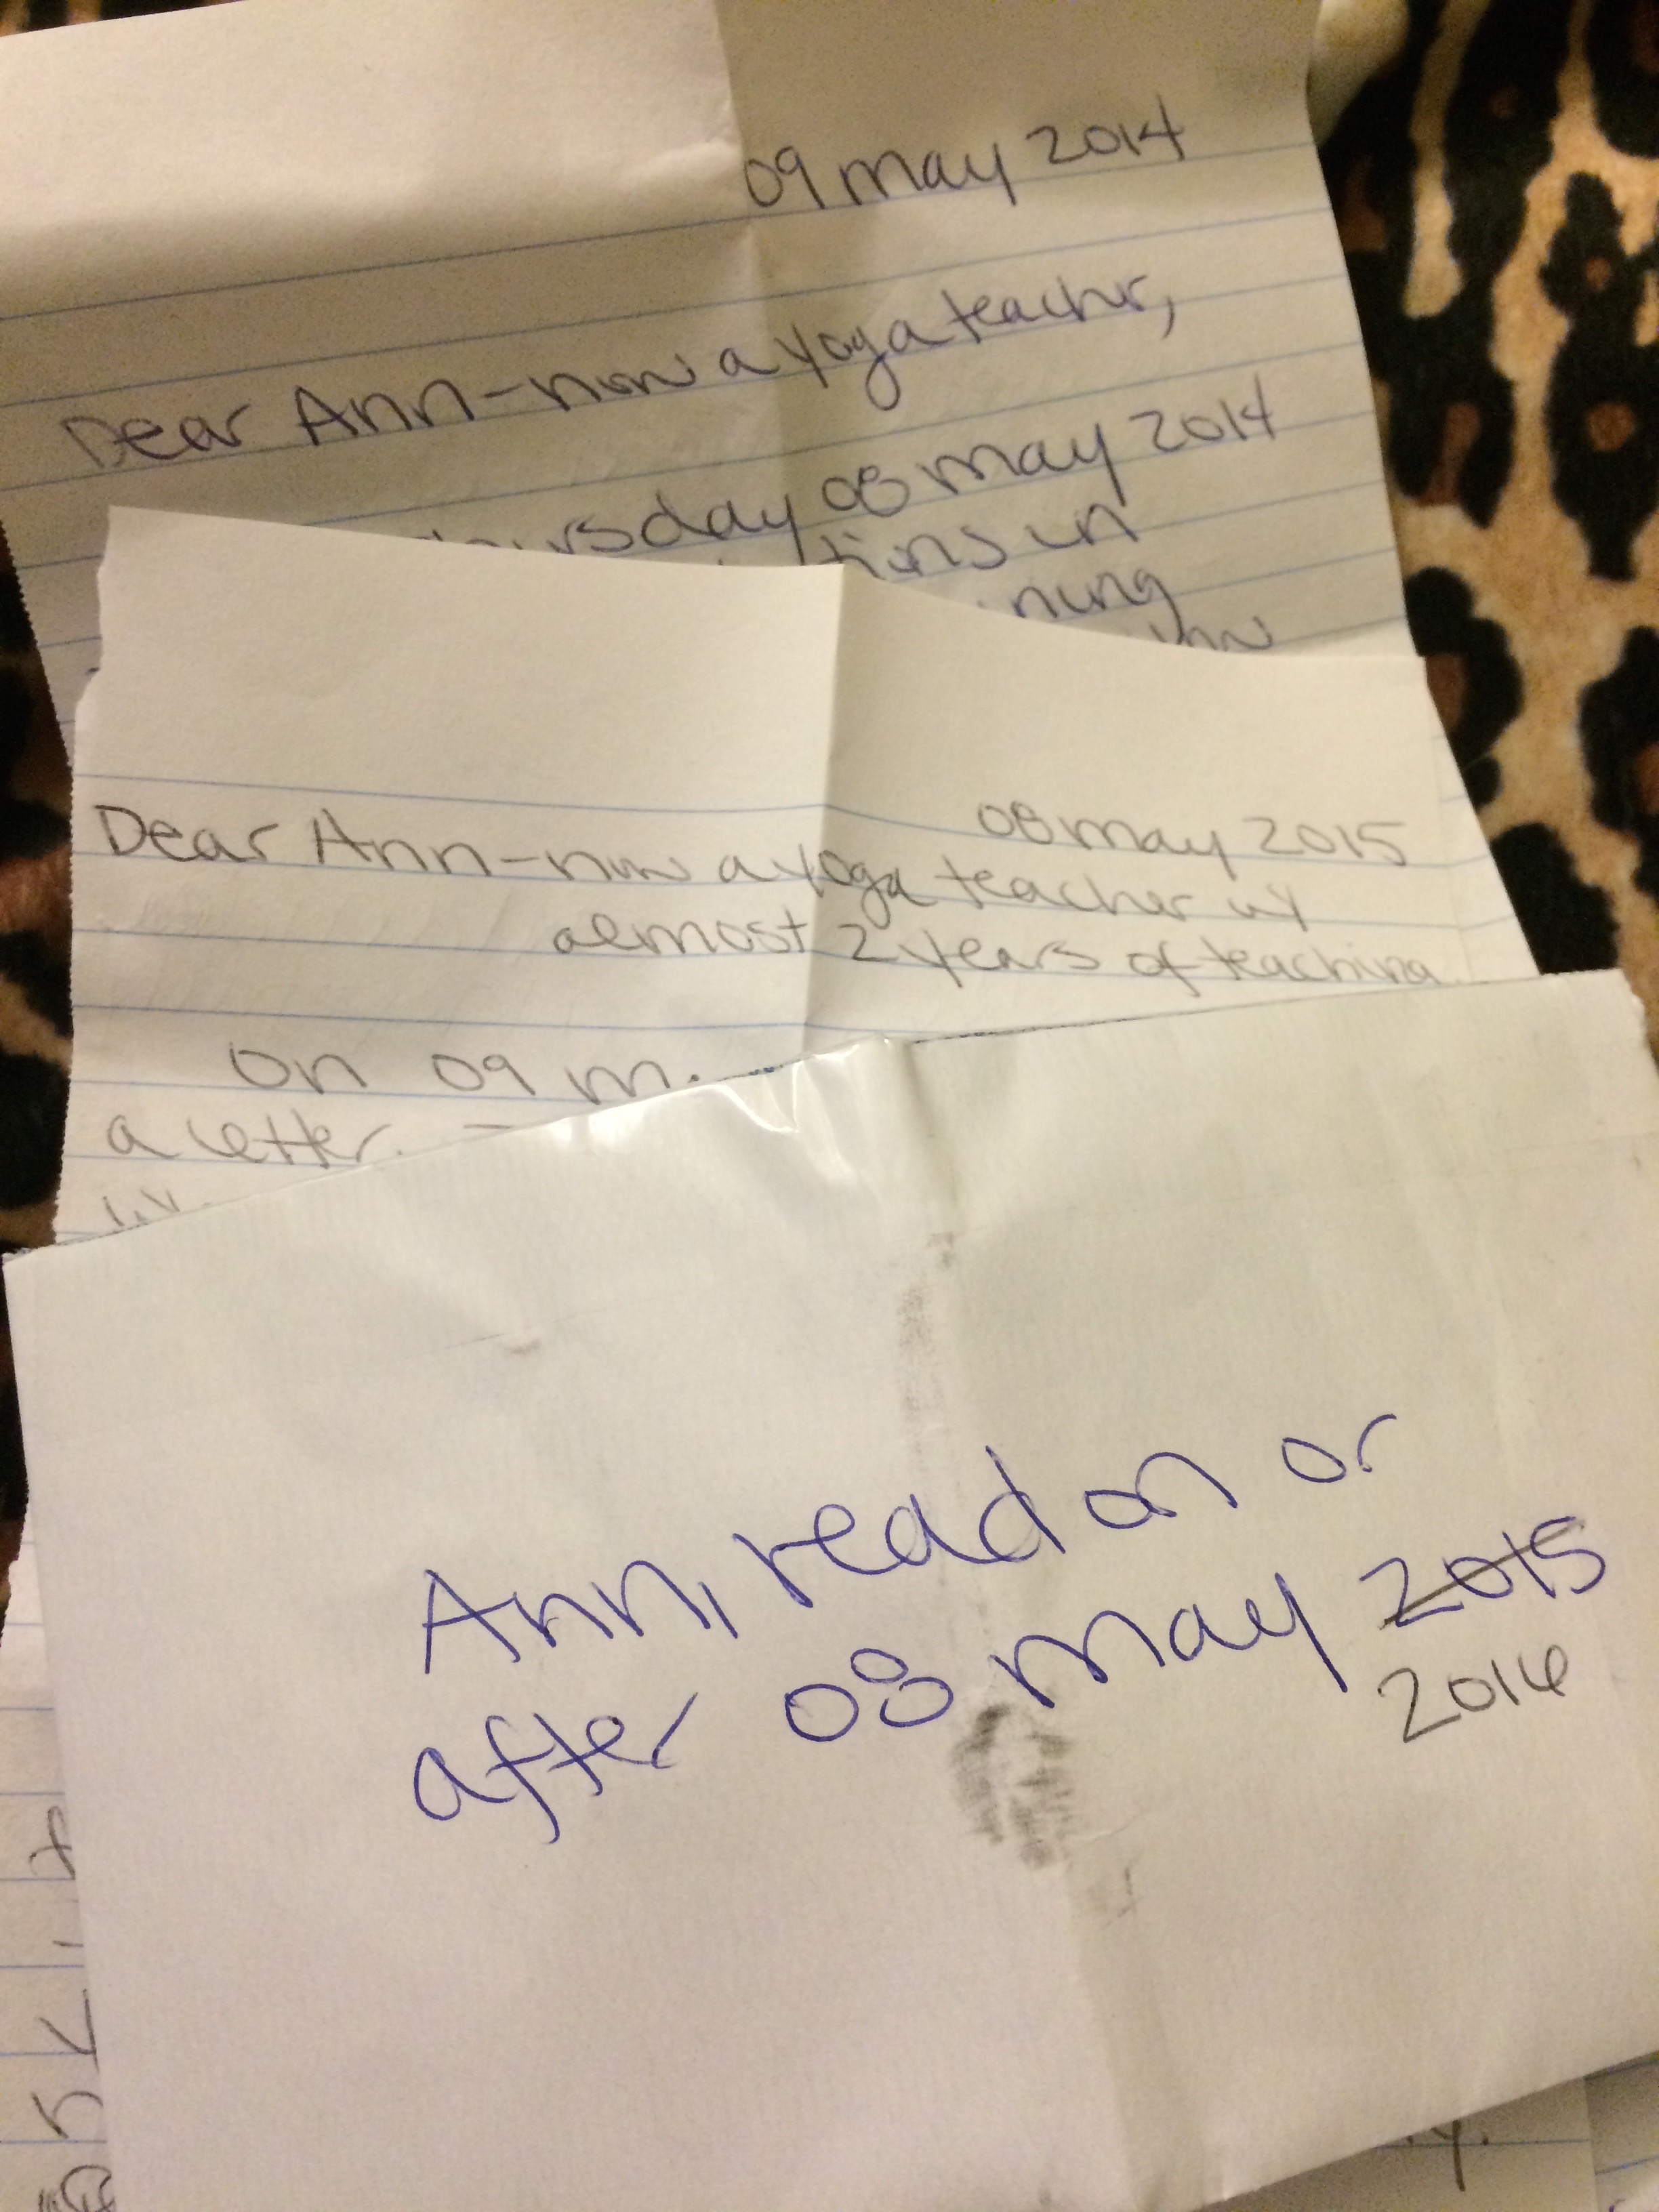 09 may 2014
Dear Ann-now a yoga teacher,
08 may 2014
in
08 may 2015
Dear Ann-now a yoga teacher w/
almost 2 years of teaching
on 09
a letter.
Ann, read on or
after 08 may 2015
2016